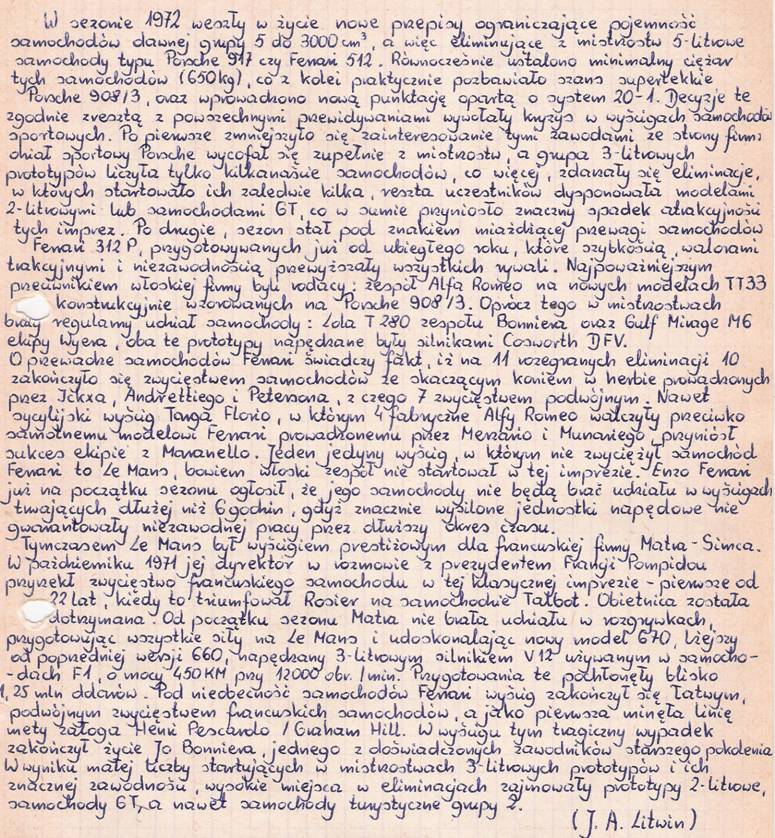 W sezonie 1972 weszły w życie nowe przepisy ograniczające pojemność
samochodów dawnej grupy 5 do 3000 cm³, a więc eliminujące z mistrzostw 5-litrowe
samochody typu Porsche 917 czy Ferrari 512. Równocześnie ustalono minimalny ciężar
tych samochodów (650kg), co z kolei praktycznie pozbawiało szans superlekkie
Porsche 908/3, oraz wprowadzono nową punktację opartą o system 20-1. Decyzje te
zgodnie zresztą z powszechnymi przewidywaniami wywołały kryzys w wyścigach samochodów
sportowych. Po pierwsze zmniejszyło się zainteresowanie tymi zawodami ze strony firm:
dział sportowy Porsche wycofał się zupełnie z mistrzostw, a grupa 3-litrowych
prototypów liczyła tylko kilkanaście samochodów, co więcej, zdarzały się eliminacje,
w których startowało ich zaledwie kilka, reszta uczestników dysponowała modelami
2-litrowymi lub samochodami GT, co w sumie przyniosło znaczny spadek atrakcyjności
tych imprez. Po drugie, sezon stał pod znakiem miażdżącej przewagi samochodów
Ferrari 312 P, przygotowywanych już od ubiegłego roku, które szybkością, walorami
trakcyjnymi i niezawodnością przewyższały wszystkich rywali. Najpoważniejszym
przeciwnikiem włoskiej firmy byli rodacy: zespół Alfa Romeo na nowych modelach TT33
konstrukcyjnie wzorowanych na Porsche 908/3. Oprócz tego w mistrzostwach
brały regularny udział samochody: Lola T280 zespołu Bonniera oraz Gulf Mirage M6
ekipy Wyera, oba te prototypy napędzane były silnikami Cosworth DFV.
O przewadze samochodów Ferrari świadczy fakt, iż na 11 rozegranych eliminacji 10
zakończyło się zwycięstwem samochodów ze skaczącym koniem w herbie prowadzonych
przez Ickxa, Andrettiego i Petersona, z czego 7 zwycięstwem podwójnym. Nawet
sycylijski wyścig Targa Florio, w którym 4 fabryczne Alfy Romeo walczyły przeciwko
samotnemu modelowi Ferrari prowadzonemu przez Merzario i Munariego, przyniósł
sukces ekipie z Maranello. Jeden jedyny wyścig, w którym nie zwyciężył samochód
Ferrari to Le Mans, bowiem włoski zespół nie startował w tej imprezie. Enzo Ferrari
już na początku sezonu ogłosił, że jego samochody nie będą brać udziału w wyścigach
trwających dłużej niż 6 godzin, gdyż znacznie wysilone jednostki napędowe nie
gwarantowały niezawodnej pracy przez dłuższy okres czasu.
Tymczasem Le Mans był wyścigiem prestiżowym dla francuskiej firmy Matra-Simca.
W październiku 1971 jej dyrektor w rozmowie z prezydentem Francji Pompidou
przyrzekł zwycięstwo francuskiego samochodu w tej klasycznej imprezie - pierwsze od
22 lat, kiedy to triumfował Rosier na samochodzie Talbot. Obietnica została
dotrzymana. Od początku sezonu Matra nie brała udziału w rozgrywkach,
przygotowując wszystkie siły na Le Mans i udoskonalając nowy model 670, lżejszy
od poprzedniej wersji 660, napędzany 3-litrowym silnikiem V12 używanym w samocho-
-dach F1, o mocy 450 KM przy 12000 obr./min. Przygotowania te pochłonęły blisko
1,25 mln dolarów. Pod nieobecność samochodów Ferrari wyścig zakończył się łatwym,
podwójnym zwycięstwem francuskich samochodów, a jako pierwsza minęła linię
mety załoga Henri Pescarolo / Graham Hill. W wyścigu tym tragiczny wypadek
zakończył życie Jo Bonniera, jednego z doświadczonych zawodników starszego pokolenia
W wyniku małej liczby startujących w mistrzostwach 3-litrowych prototypów i ich
znacznej zawodności, wysokie miejsca w eliminacjach zajmowały prototypy 2-litrowe,
samochody GT, a nawet samochody turystyczne grupy 2.
(J. A. Litwin)